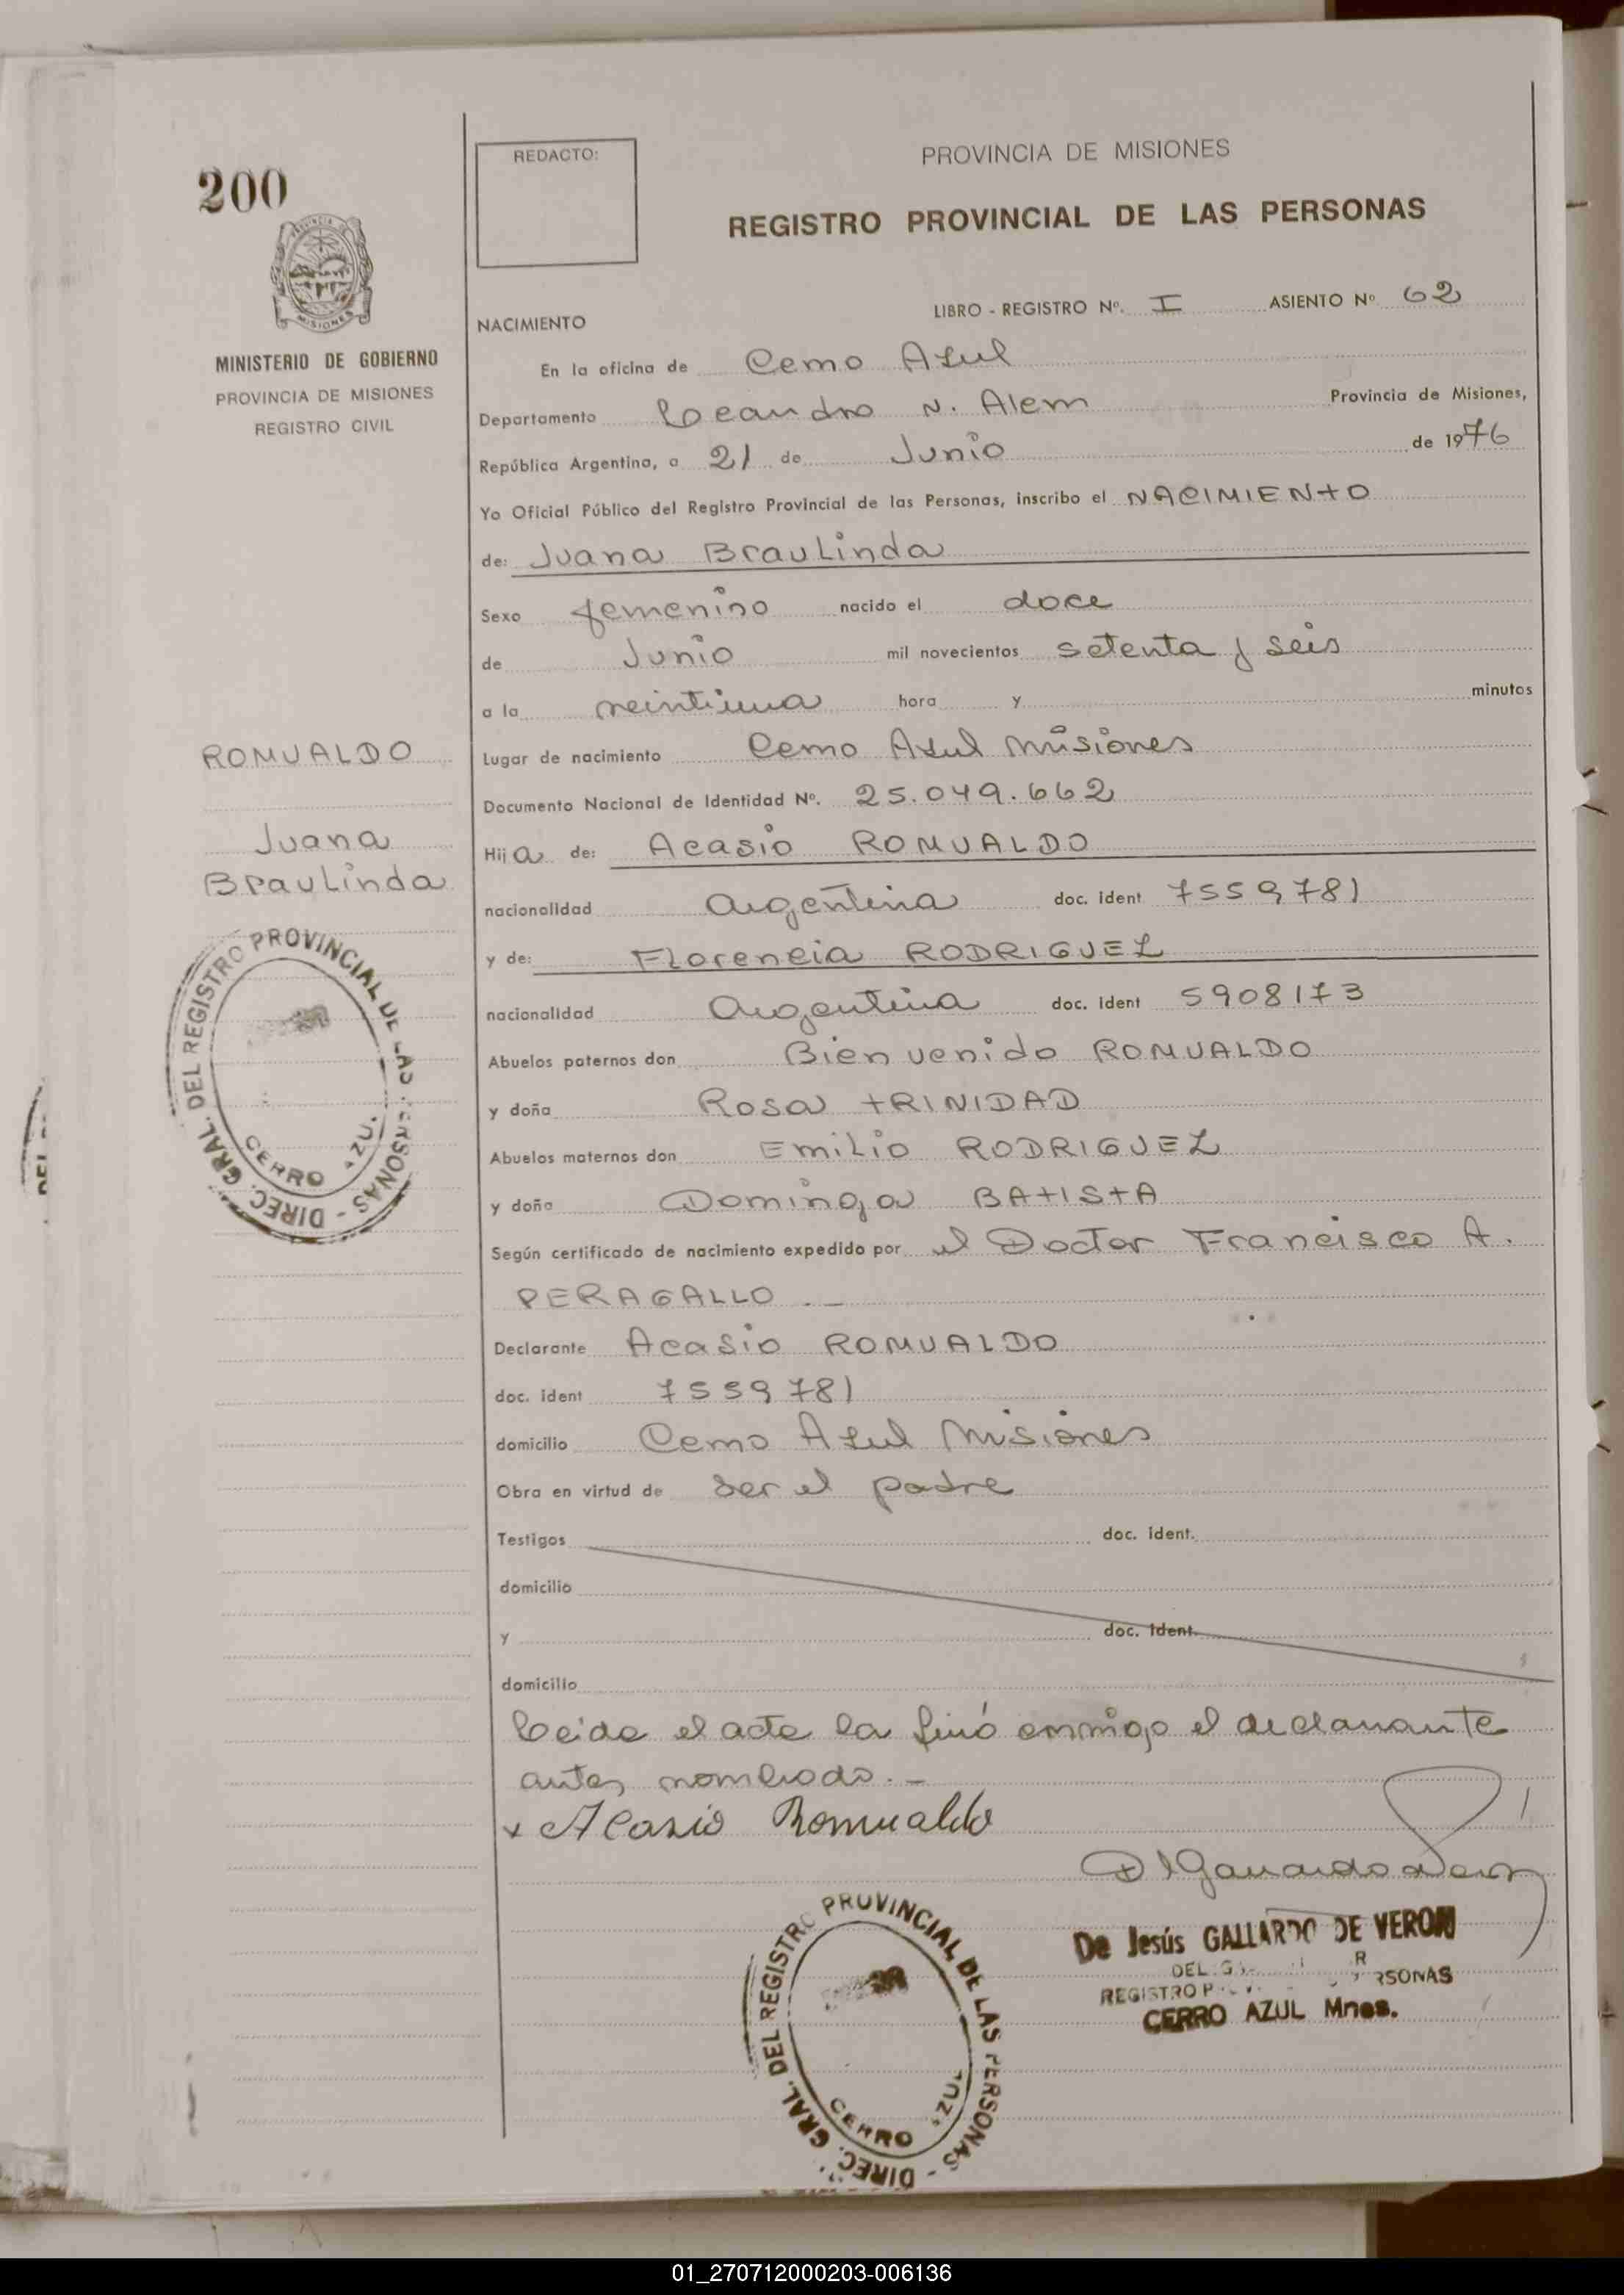 200
MISIONES
MINISTERIO DE GOBIERNO
PROVINCIA DE MISIONES
REGISTRO CIVIL
ROMUALDO
Juana
Braulinda
DIREC. GRAL. DEL REGISTRO PROVINCIAL DE LAS PERSONAS -
CERRO AZUL
REDACTO:
PROVINCIA DE MISIONES
REGISTRO PROVINCIAL DE LAS PERSONAS
LIBRO - REGISTRO Nº. I ASIENTO Nº 62
NACIMIENTO
En la oficina de Cerro Azul
Departamento Leandro N. Alem Provincia de Misiones,
República Argentina, a 21 de Junio de 1976
Yo Oficial Público del Registro Provincial de las Personas, inscribo el NACIMIENTO
de: Juana Braulinda
Sexo femenino nacido el doce
de Junio mil novecientos setenta y seis
a la veintiuna hora y minutos
Lugar de nacimiento Cerro Azul Misiones
Documento Nacional de Identidad Nº. 25.049.662
Hija de: Acasio ROMUALDO
nacionalidad Argentina doc. ident 7559781
y de: Florencia RODRIGUEZ
nacionalidad Argentina doc. ident 5908173
Abuelos paternos don Bienvenido ROMUALDO
y doña Rosa TRINIDAD
Abuelos maternos don Emilio RODRIGUEZ
y doña Dominga BATISTA
Según certificado de nacimiento expedido por el Doctor Francisco A.
PERAGALLO . —
Declarante Acasio ROMUALDO
doc. ident 7559781
domicilio Cerro Azul Misiones
Obra en virtud de ser el padre
Testigos doc. ident.
domicilio
y doc. ident.
domicilio
Leida el acta la firmó conmigo el declarante
antes nombrado. —
x Acasio Romualdo
De Jesús GALLARDO DE VERON
CERRO AZUL Mnes.
DIREC. GRAL. DEL REGISTRO PROVINCIAL DE LAS PERSONAS -
CERRO AZUL
01_270712000203-006136